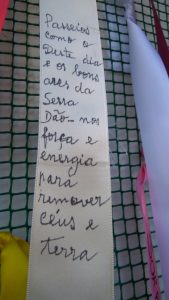 Passeios
como o
Deste dia
e os bons
ares da
Serra
Dão-nos
força e
energia
para
remover
céus e
terra